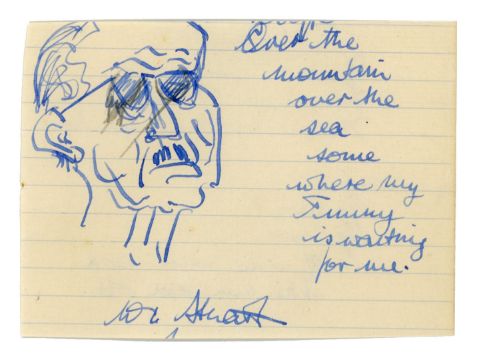 Over the
mountain
over the
sea
some
where my
is waiting
for me.
Stuart